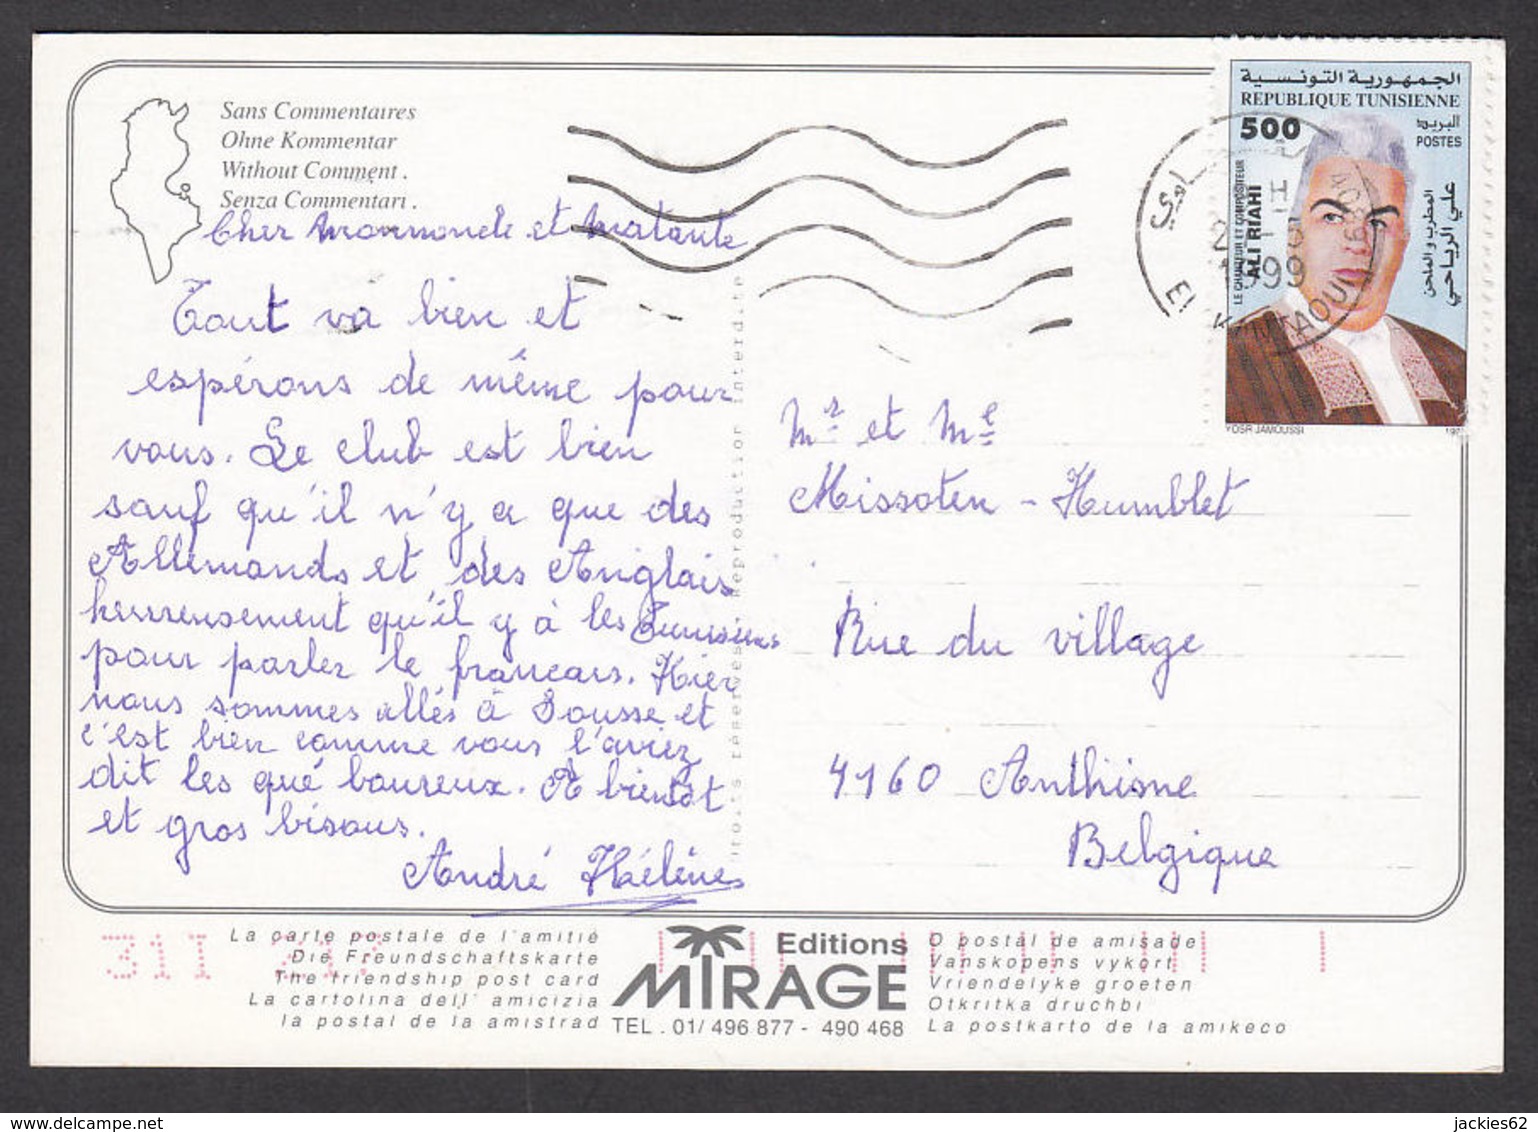 Sans Commentaires
Ohne Kommentar
Without Comment .
Senza Commentari .
Cher Mononcle et Matante
Tout va bien et
espérons de même pour
vous. Le club est bien
sauf qu'il n'y a que des
Allemands et des Anglais
heureusement qu'il y à les Tunisiens
pour parler le francais. Hier
nous sommes allés à Sousse et
c'est bien comme vous l'aviez
dit les qué boureux. A bientôt
et gros bisous.
André Hélène
Droits réservés. Reproduction interdite
الجمهورية التونسية
REPUBLIQUE TUNISIENNE
500
البريد
POSTES
LE CHANTEUR ET COMPOSITEUR
ALI RIAHI
المطرب والملحن
علي الرياحي
YOSR JAMOUSSI
EL KANTAOUI
1999
Mr et Me
Missoten - Humblet
Rue du village
4160 Anthisne
Belgique
31I
La carte postale de l'amitié
Die Freundschaftskarte
The friendship post card
La cartolina dell' amicizia
la postal de la amistrad
Editions
MIRAGE
TEL . 01/ 496 877 - 490 468
O postal de amisade
Vanskopens vykort
Vriendelyke groeten
Otkritka druchbi
La postkarto de la amikeco
jackies62